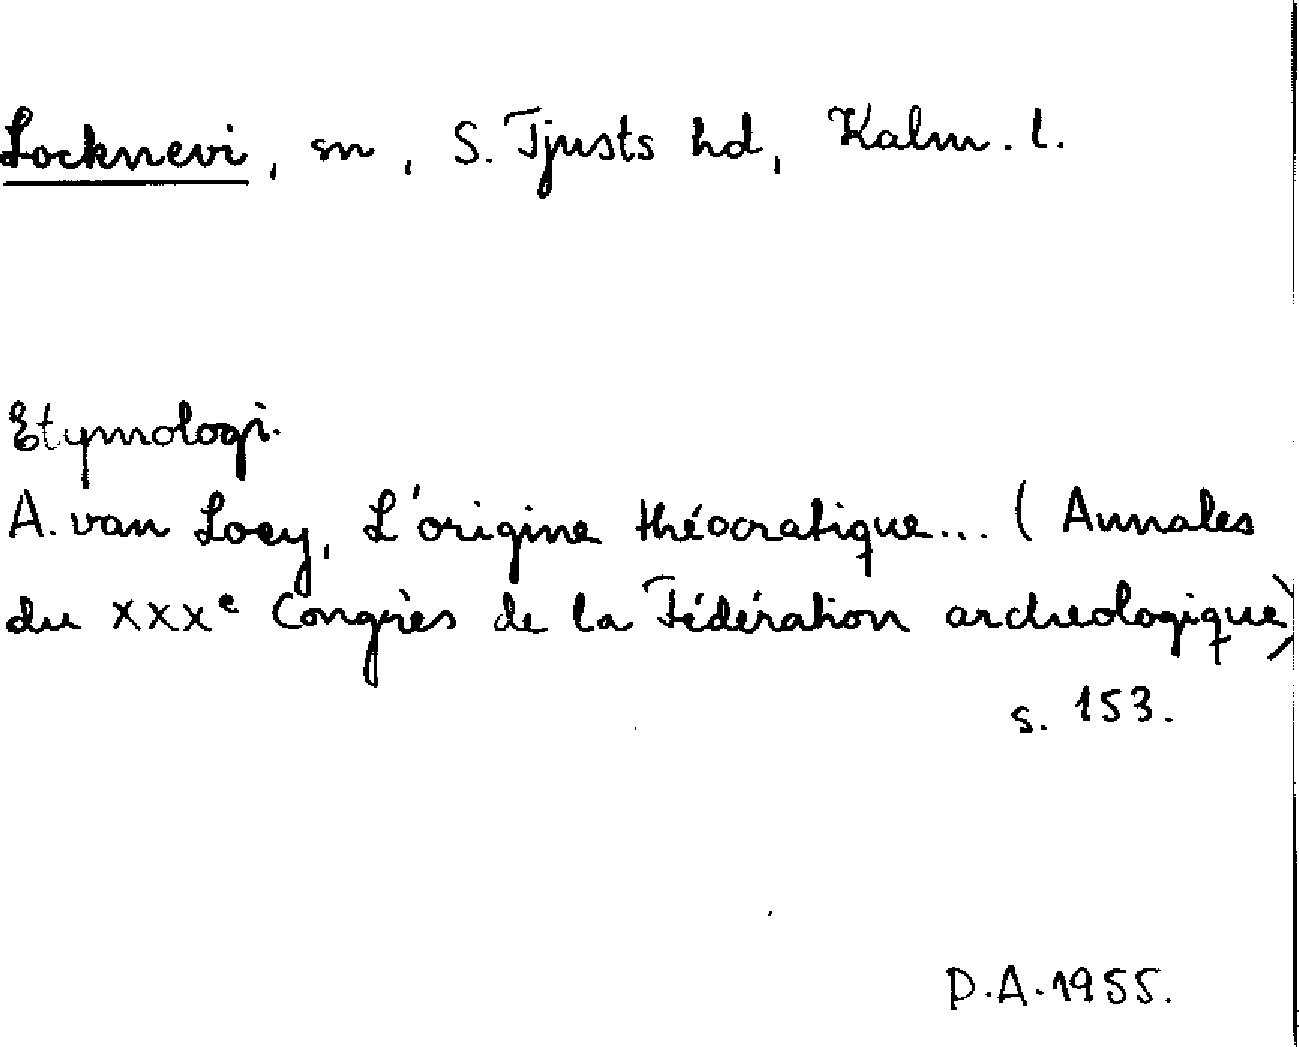 Locknevi, sn, S. Tjusts hd, Kalm. l.
Etymologi.
A. van Loey, L'origine théocratique... (Annales
du XXXe Congrès de la Fédération archeologique)
s. 153.
D.A. 1955.